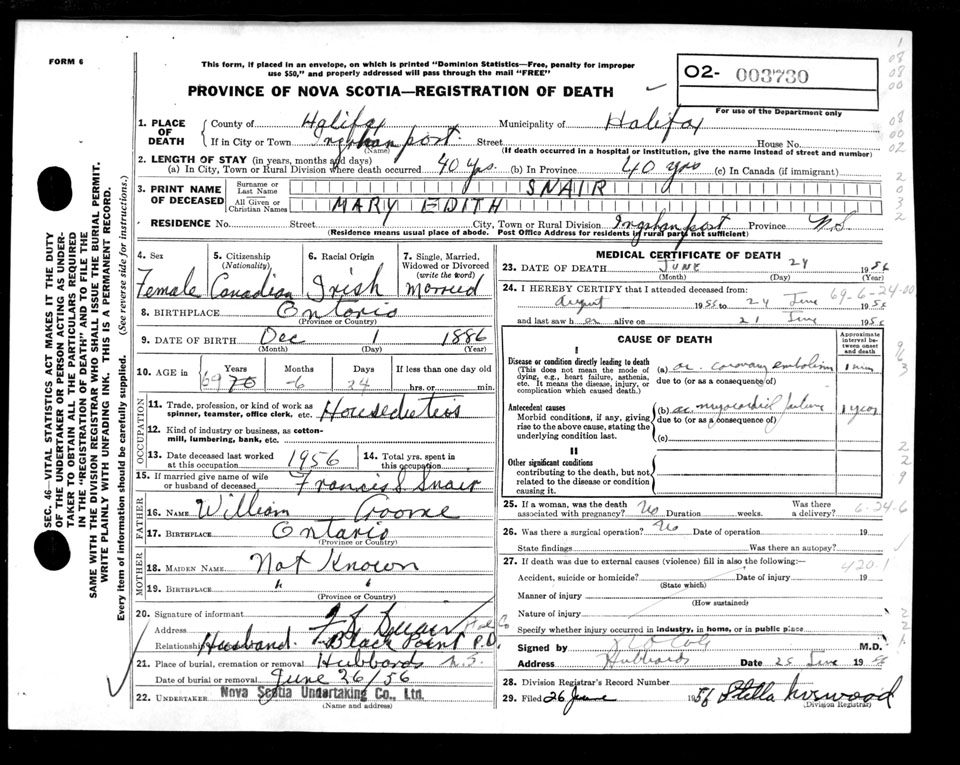 FORM 6
This form, if placed in an envelope, on which is printed "Dominion Statistics—Free, penalty for improper
use $50," and properly addressed will pass through the mail "FREE"
O2- 003730
PROVINCE OF NOVA SCOTIA—REGISTRATION OF DEATH
For use of the Department only
1. PLACE OF DEATH
County of Halifax Municipality of Halifax
If in City or Town Street House No.
(Name) (If death occurred in a hospital or institution, give the name instead of street and number)
2. LENGTH OF STAY (in years, months and days)
(a) In City, Town or Rural Division where death occurred 40 yrs. (b) In Province 40 yrs (c) In Canada (if immigrant)
3. PRINT NAME OF DECEASED
Surname or Last Name SNAIR
All Given or Christian Names MARY EDITH
RESIDENCE No. Street City, Town or Rural Division Province N.S
(Residence means usual place of abode. Post Office Address for residents in rural parts not sufficient)
4. Sex
Female
5. Citizenship (Nationality)
Canadian
6. Racial Origin
Irish
7. Single, Married, Widowed or Divorced (write the word)
Married
8. BIRTHPLACE Ontario
(Province or Country)
9. DATE OF BIRTH Dec 1 1886
(Month) (Day) (Year)
10. AGE in Years Months Days If less than one day old
69 70 6 24 hrs. or min.
OCCUPATION
11. Trade, profession, or kind of work as spinner, teamster, office clerk, etc. Houseduties
12. Kind of industry or business, as cotton-mill, lumbering, bank, etc.
13. Date deceased last worked at this occupation 1956
14. Total yrs. spent in this occupation
15. If married give name of wife or husband of deceased Francis S Snair
FATHER
16. NAME William
17. BIRTHPLACE Ontario
(Province or Country)
MOTHER
18. MAIDEN NAME Not Known
19. BIRTHPLACE " "
(Province or Country)
20. Signature of informant F S Snair
Address Black Point P.O.
Relationship Husband
21. Place of burial, cremation or removal Hubbards N.S.
Date of burial or removal June 26/56
22. UNDERTAKER Nova Scotia Undertaking Co., Ltd.
(Name and address)
MEDICAL CERTIFICATE OF DEATH
23. DATE OF DEATH JUNE 24 1956
(Month) (Day) (Year)
24. I HEREBY CERTIFY that I attended deceased from:
August 1955 to 24 June 1956
69-6-24-00
and last saw her alive on 21 June 1956
CAUSE OF DEATH
Approximate interval between onset and death
I
Disease or condition directly leading to death
(This does not mean the mode of dying, e.g., heart failure, asthenia, etc. It means the disease, injury, or complication which caused death.)
(a) ac. coronary embolism 1 min
due to (or as a consequence of)
Antecedent causes
Morbid conditions, if any, giving rise to the above cause, stating the underlying condition last.
(b) ac myocardial failure 1 year
due to (or as a consequence of)
(c)
II
Other significant conditions
contributing to the death, but not related to the disease or condition causing it.
25. If a woman, was the death associated with pregnancy? No Duration weeks. Was there a delivery?
6-24-6
26. Was there a surgical operation? No Date of operation 19
State findings Was there an autopsy?
27. If death was due to external causes (violence) fill in also the following:—
420.1
Accident, suicide or homicide? Date of injury 19
(State which)
Manner of injury
(How sustained)
Nature of injury
Specify whether injury occurred in industry, in home, or in public place
Signed by M.D.
Address Hubbards Date 25 June 1956
28. Division Registrar's Record Number
29. Filed 26 June 1956 Stella
(Division Registrar)
SEC. 46—VITAL STATISTICS ACT MAKES IT THE DUTY
OF THE UNDERTAKER OR PERSON ACTING AS UNDER-
TAKER TO OBTAIN ALL THE PARTICULARS REQUIRED
IN THE "REGISTRATION OF DEATH" AND TO FILE THE
SAME WITH THE DIVISION REGISTRAR WHO SHALL ISSUE THE BURIAL PERMIT.
WRITE PLAINLY WITH UNFADING INK. THIS IS A PERMANENT RECORD.
Every item of information should be carefully supplied. (See reverse side for instructions.)